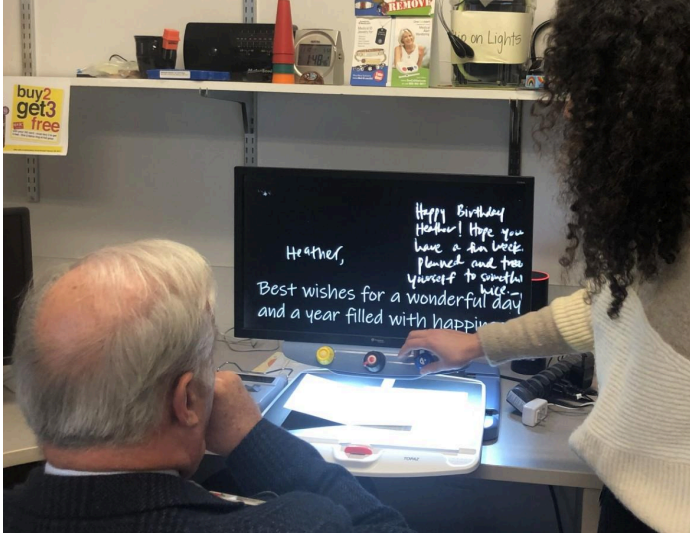 REMOVE
up on Lights
buy2
get3
free
Heather,
Happy Birthday
Heather! Hope you
have a fun week
planned and treat
yourself to
nice.
Best wishes for a wonderful day
and a year filled with